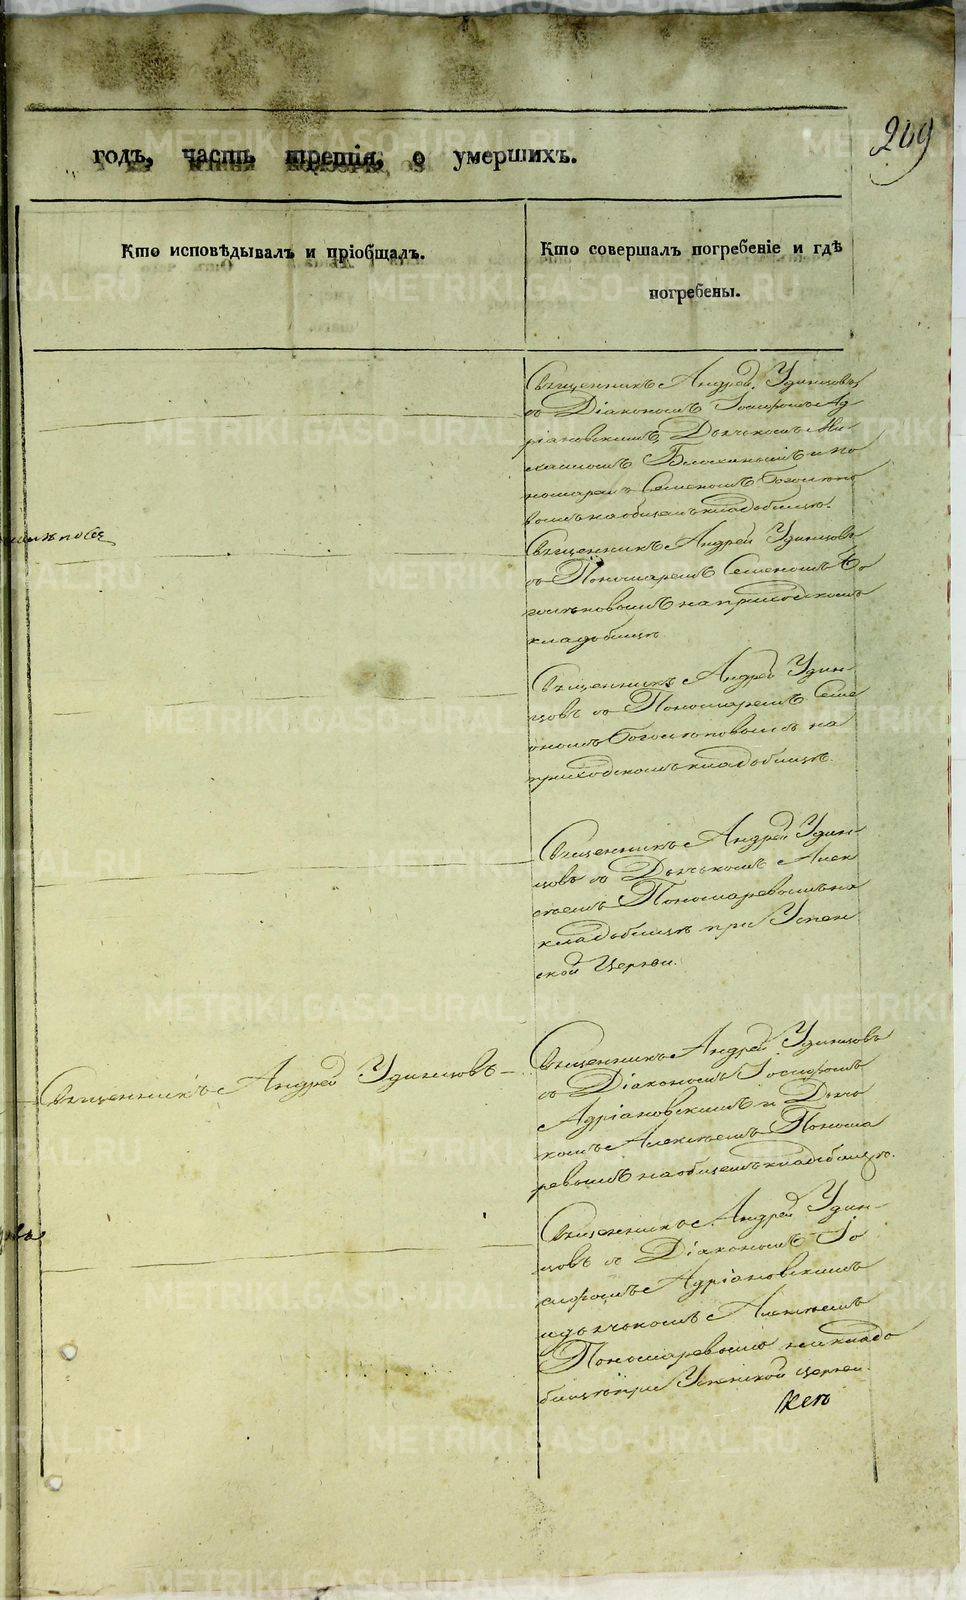 269
годъ, часть третія, о умершихъ.
Кто исповѣдывалъ и пріобщалъ.
Кто совершалъ погребеніе и гдѣ
погребены.
Священникъ Андрей Удинцовъ
съ Діакономъ Іосифомъ Ад
ріановскимъ, Дьячкомъ Ми-
хаиломъ и По
номаремъ Семеномъ Боголѣпо
вымъ на общемъ кладбищѣ.
Священникъ Андрей Удинцовъ
съ Пономаремъ Семеномъ Бо
голѣповымъ на приходскомъ
кладбищѣ
Священникъ Андрей Удин-
цовъ съ Пономаремъ Семе
ономъ Боголѣповымъ на
приходскомъ кладбищѣ.
Священникъ Андрей Удин-
цовъ съ Дьячкомъ Алек
сѣемъ Пономаревымъ на
кладбищѣ при Успен
ской Церкви.
Священникъ Андрей Удинцовъ
Священникъ Андрей Удинцовъ
съ Діакономъ Іосифомъ
Адріановскимъ и Дьяч
комъ Алексѣемъ Понома
ревымъ на общемъ кладбищѣ.
Священникъ Андрей Удин-
цовъ съ Діакономъ Іо
сифомъ Адріановскимъ
и дьячкомъ Алексѣемъ
Пономаревымъ на кладо
бищѣ при Успенской церкви.
METRIKI.GASO-URAL.RU